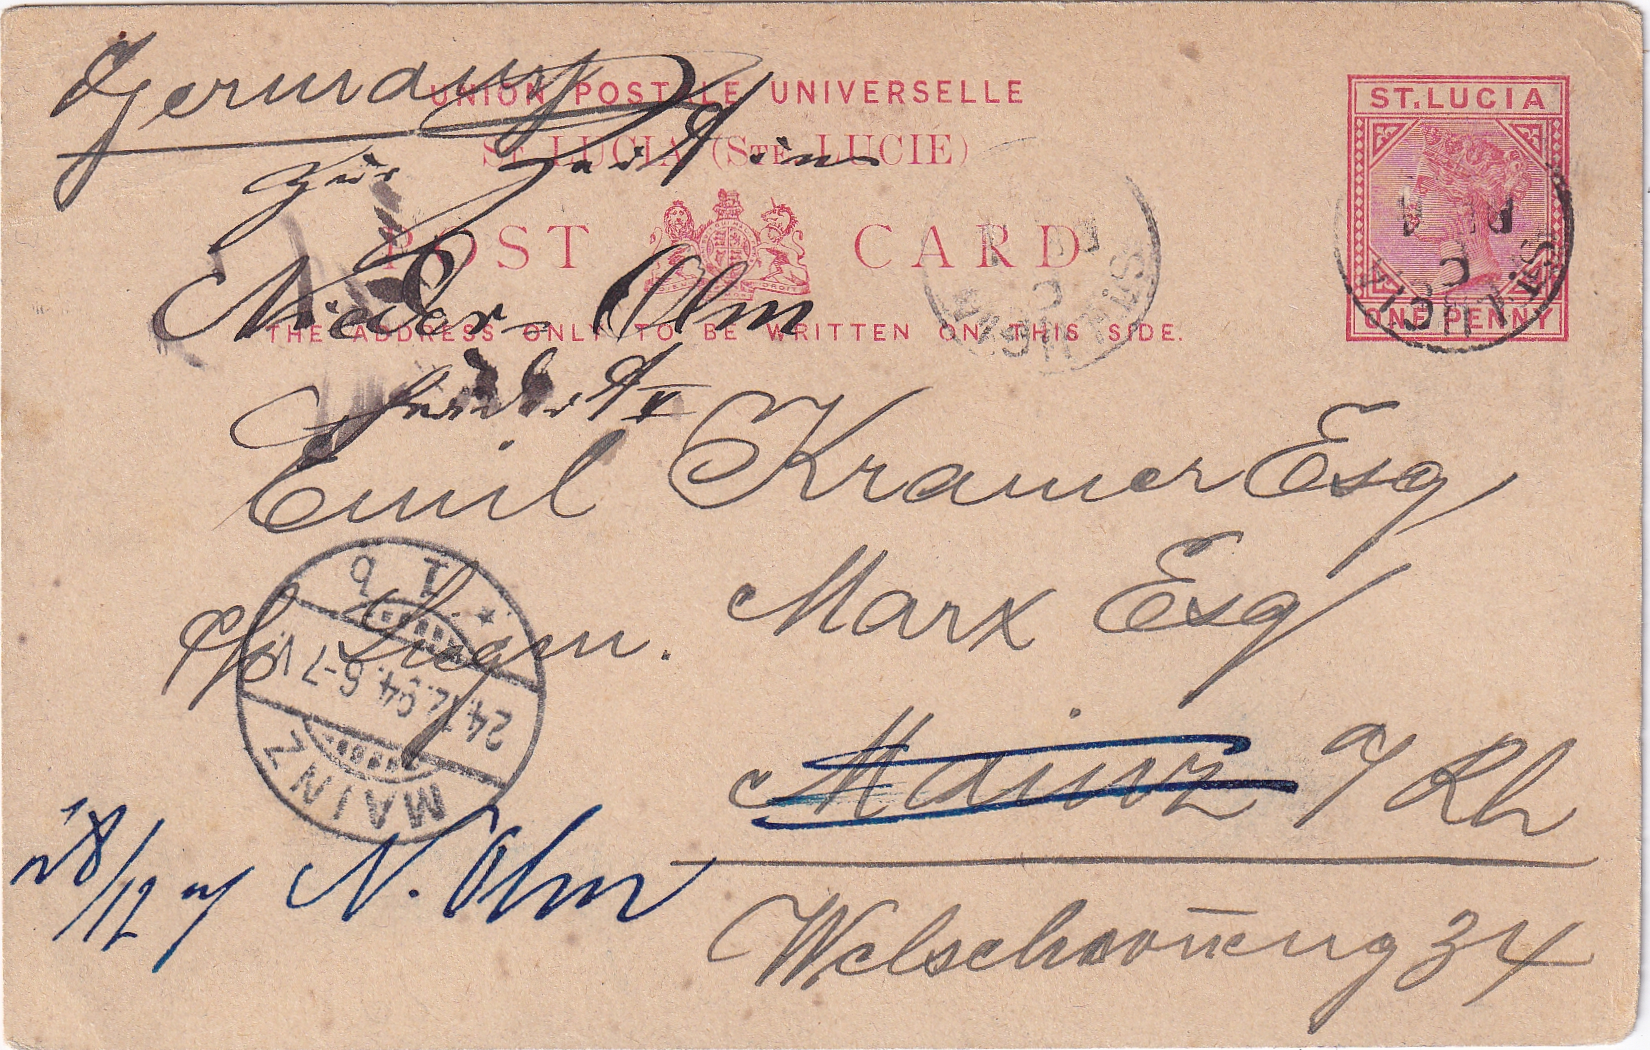 Germany
UNION POSTALE UNIVERSELLE
ST. LUCIA (STE LUCIE)
zur Zeit in
POST CARD
Nieder-Olm
THE ADDRESS ONLY TO BE WRITTEN ON THIS SIDE.
ST. LUCIA
ONE PENNY
ST. LUCIA
C
ST. LUCIA
C
Emil Kramer Esq
c/o Sigm. Marx Esq
Mainz a/Rh
Welschnonneng 34
MAINZ
24.12.94. 6-7 V.
* 1 b
28/12 N. Olm